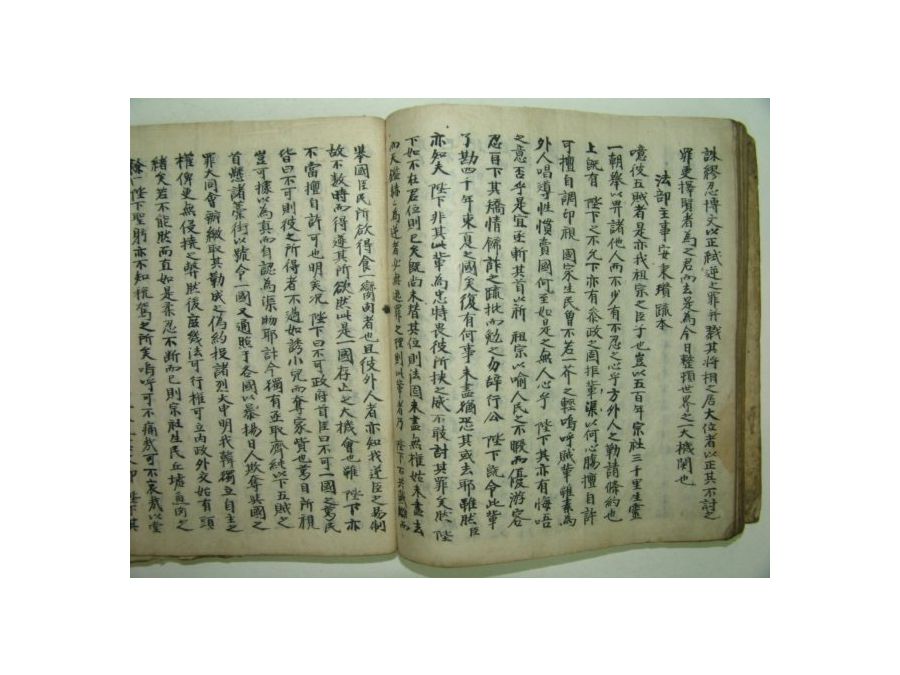 誅繆忍博文以正弑逆之罪幷戮其將相之居大位者以正其不討之
罪更擇賢者為之君而去等為今日整頓世界之一大機關也
法部主事安東瓚疏本
噫彼五賊者是亦我祖宗之臣子也豈以五百年宗社三千里生靈
一朝擧以畀諸他人而不少有不忍之心乎方外人之勒請條約也
上旣有 陛下之不允下亦有參政之固拒輩渠以何心膓擅自計
可擅自調印視 國家生民曾不若一芥之輕嗚呼賊輩雖素為
外人唱導性慣賣國何至如是之無人心乎 陛下其亦有悔悟
之意否乎是宜亟斬其首以謝 祖宗以喩人民之不暇而優游容
忍百下其矯情餙詐之疏批而勉之勿辭行公 陛下旣令此輩
了勘四千年東夏之國矣復有何事未盡猶恐其或去耶雖然臣
亦知夫 陛下非其此輩為忠特畏彼所挾之威不敢討其罪矣然 陛
下如不在君位則已矣旣尚未替其位則法固未盡無權姑未盡去
擧國臣民所欲得食一臠肉者也且彼外人者亦知我逆臣之易制
故不數時而得遂其所欲然此是一國存亡之大機會也雖 陛下亦
不當擅自許可也明矣况 陛下曰不可政府首臣曰不可一國之萬民
皆曰不可則彼之所得者不過如誘小兒而奪家貨也萬目所視
豈可據以為眞而自認為渠物耶計今獨有亟取齊純以下五賊之
首懸諸藁街以號令一國又通照于各國以暴揚日人欺奪與國之
罪大同會辦繳取其勒成之偽約投諸烈火申明我韓獨立自主之
權俾更無侵撓之弊然後庶幾法可行權可立內政外交始有頭
緖矣若不能然而直如是柔忍不斷而已則宗社生民丘墟魚肉之
餘 陛下聖躬亦不知稅駕之所矣嗚呼可不痛哉可不哀哉以堂